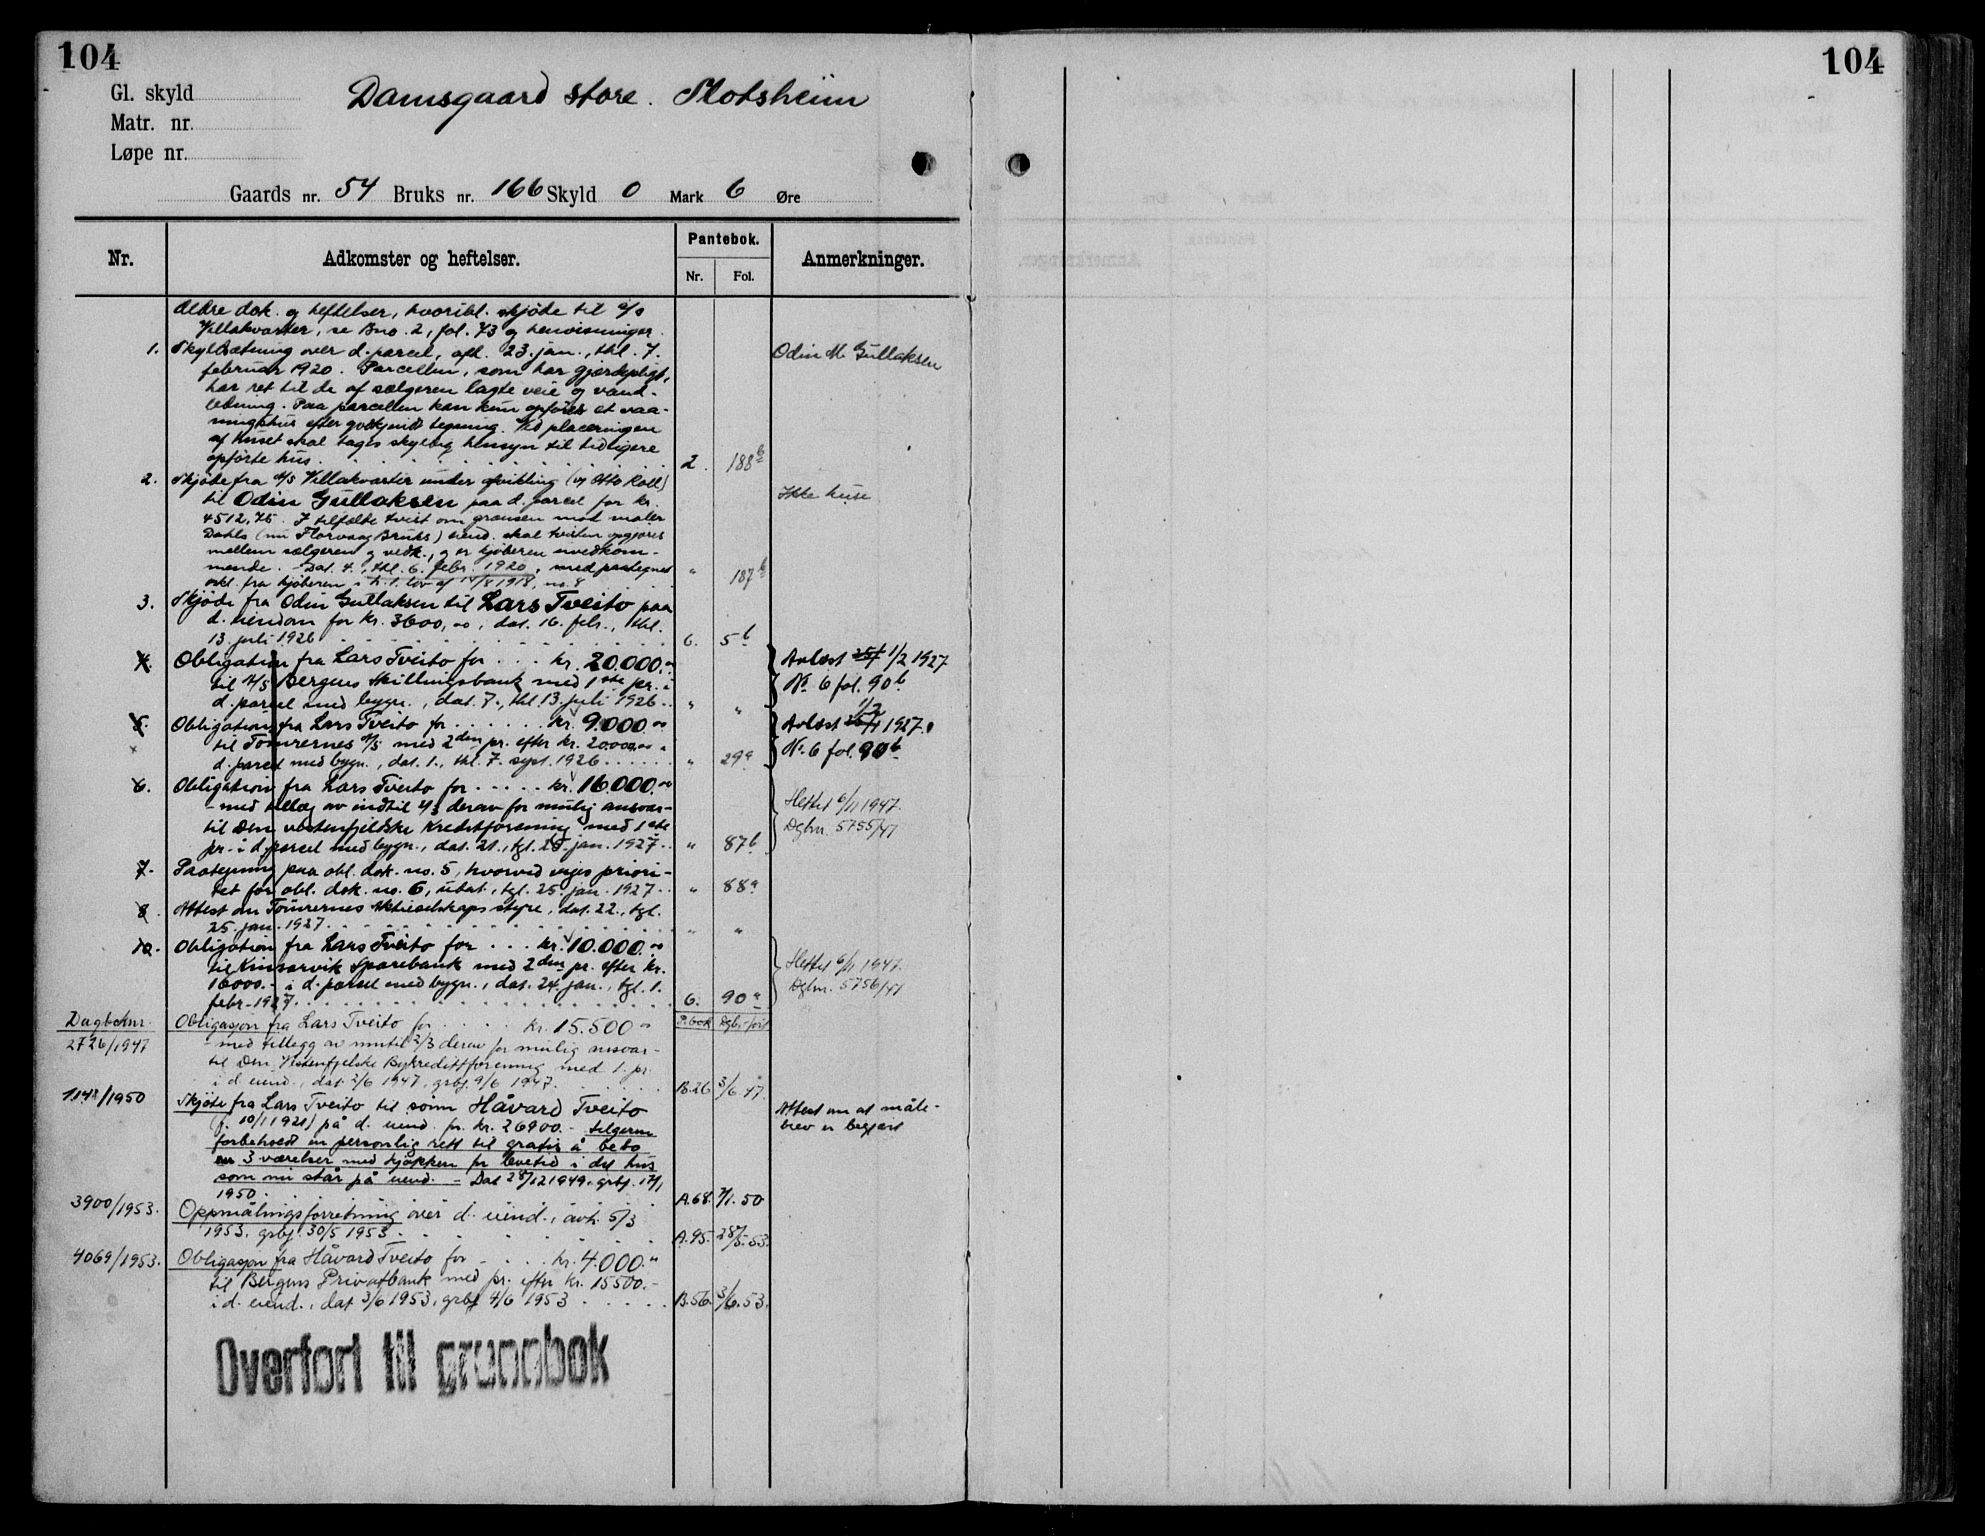 104
104
Gl. skyld
Damsgaard store. Slotsheim
Matr. nr.
Løpe nr.
Gaards nr. 54 Bruks nr. 166 Skyld 0 Mark 6 Øre
Nr.
Adkomster og heftelser.
Pantebok.
Nr.
Fol.
Anmerkninger.
Ældre dok. og heftelser, hvoribl. skjøde til a/s
Villakvarter, se Bno. 2, fol. 73 og henvisninger.
1. Skyldsætning over d. parcel, afh. 23. jan., thl. 7.
Odin M Gullaksen
februar 1920. Parcellen, som har gjærdepligt,
har ret til de af sælgeren lagte veie og vand-
ledning. Paa parcellen kan kun opføres et vaa-
ningshus efter godkjendt tegning. Ved placeringen
af huset skal tages skyldig hensyn til tidligere
opførte hus. 2. 188b
2. Skjøde fra a/s Villakvarter under afvikling (v/ Otto Roll)
til Odin Gullaksen paa d. parcel for kr.
Ikke huse
4512,75. I tilfælde tvist om grænsen mod maler
Dahls (nu Florvaag Bruks) eiend. skal tvisten opgjøres
mellem sælgeren og vedk., og er kjøberen uvedkom-
mende. Dat. 4., thl. 6. febr. 1920, med paategnet
erkl. fra kjøberen i h. t. lov af 14/8 1918, no. 8 " 187b
3. Skjøde fra Odin Gullaksen til Lars Tveito paa
d. eiendom for kr. 3600,00, dat. 16. febr., thl.
13. juli 1926 6. 5b
4. Obligation fra Lars Tveito for kr. 20.000.00
til A/S Bergens Skillingsbank med 1ste pr. i
d. parcel med bygn., dat. 7., thl. 13. juli 1926 " "
Avlæst 25/1 1/2 1927
No 6 fol. 90b
5. Obligation fra Lars Tveito for kr. 9.000.00
til Tømrernes A/S med 2den pr. efter kr. 20000,00 i
d. parcel med bygn., dat. 1., thl. 7. sept. 1926 " 29a
1/2
Avlæst 25/1 1927.
No. 6 fol. 90b
6. Obligation fra Lars Tveito for kr. 16.000.00
- med tillæg av indtil 2/3 derav for mulig ansvar -
til Den vestenfjeldske Kreditforening med 1ste
pr. i d. parcel med bygn., dat. 21., tgl. 25. jan. 1927 " 87b
Slettet 6/11 1947.
Dgbnr. 5755/47
7. Paategning paa obl. dok. no. 5, hvorved viges priori-
tet for obl. dok. no. 6, udat., tgl. 25. jan. 1927 " 88a
8. Attest om Tømrernes Aktieselskaps styre, dat. 22., tgl.
25. jan. 1927 " "
10. Obligation fra Lars Tveito for kr. 10.000.00
til Kinsarvik Sparebank med 2den pr. efter kr.
16000.- i d. parsel med bygn., dat. 24. jan., tgl. 1.
febr. 1927 6. 90a
Slettet 6/11 1947.
Dgbnr. 5756/47
Dagboknr.
P.bok Dgb.-ført
2726/1947
Obligasjon fra Lars Tveito for kr. 15.500.00
- med tillegg av inntil 2/3 derav for mulig ansvar -
til Den Vestenfjelske Bykredittforening med 1. pr.
i d. eiend., dat. 3/6 1947, grbf. 9/6 1947. B.26 3/6.47.
1148/1950 Skjøte fra Lars Tveito til sønn Håvard Tveito
(f. 10/11 1921) på d. eiend. for kr. 26900.- Selgeren
Attest om at måle-
brev er begjært
forbeholdt en personlig rett til gratis å bebo
3 værelser med kjøkken for levetid i det hus
som nu står på eiend. - Dat 28/12 1949, grbf. 17/1
1950. A.68. 7/1.50
3900/1953. Oppmålingsforretning over d. eiend., avh. 5/3
1953, grbf. 30/5 1953. A.95. 28/5.53.
4069/1953. Obligasjon fra Håvard Tveito for kr. 4.000.00
til Bergens Privatbank med pr. efter kr. 15500.-
i d. eiend., dat 3/6 1953, grbf 4/6 1953 B.56. 3/6.53.
Overført til grunnbok